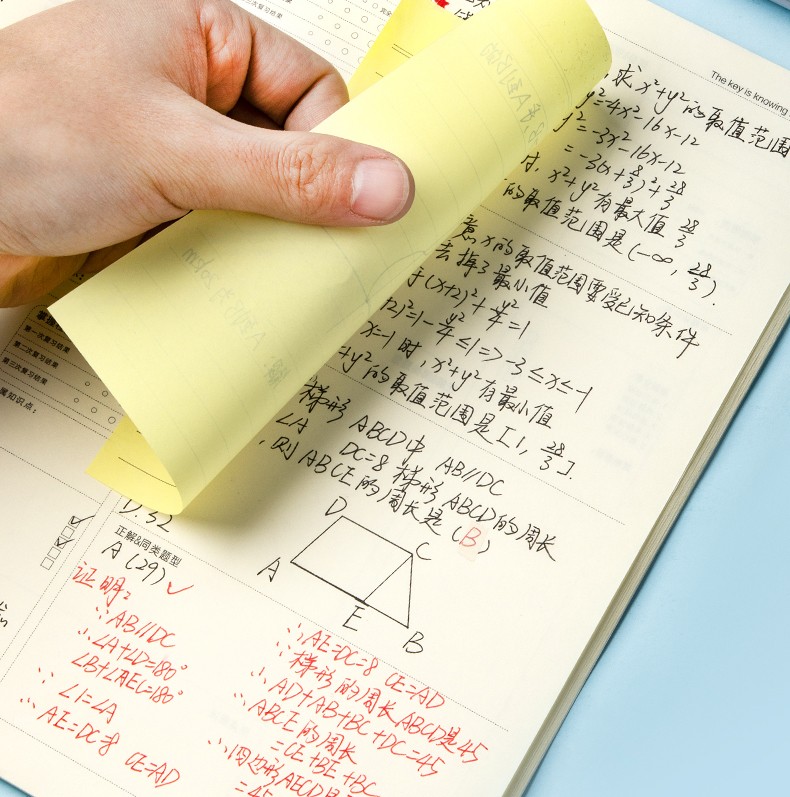 The key is knowing
,求x²+y²的取值范围
y²=4x²-16x-12
y²=-3x²-16x-12
=-3(x+8/3)²+28/3
时,x²+y²有最大值28/3
的取值范围是(-∞,28/3).
意x的取值范围要受已知条件
去掉了最小值
于(x+2)²+y²/4=1
+2)²=1-y²/4≤1=>-3≤x≤-1
x=-1时,x²+y²有最小值
+y²的取值范围是[1,28/3].
梯形ABCD中 AB//DC
∠A DC=8 梯形ABCD的周长
,则ABCE的周长是(B)
第一次复习结果
第二次复习结果
第三次复习结果
属知识点:
D.32
正解&同类题型
A(29)✓
D
C
A
E
B
证明:
∵AB//DC
∴∠A+∠D=180°
∠B+∠AEC=180°
∵∠1=∠A
∴AE=DC=8 CE=AD
∵AE=DC=8 CE=AD
∵梯形的周长ABCD是45
∴AD+AB+BC+DC=45
∴ABCE的周长
=CE+BE+BC
∴四边形AECD是
=45